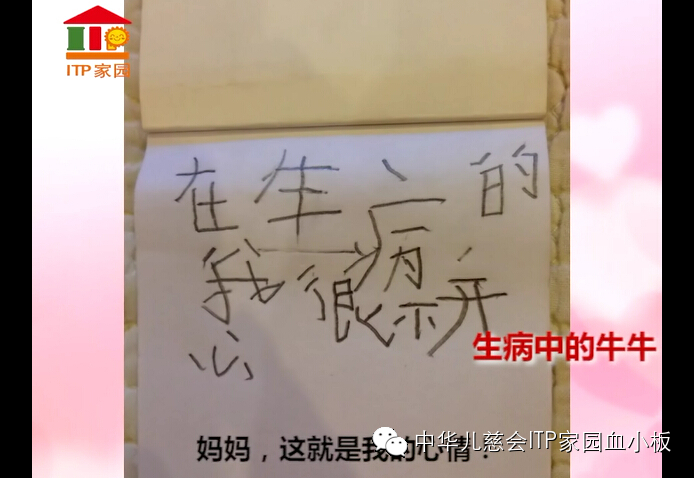 ITP家园
在生病的
我很不开
心
生病中的牛牛
妈妈，这就是我的心情！
中华儿慈会ITP家园血小板